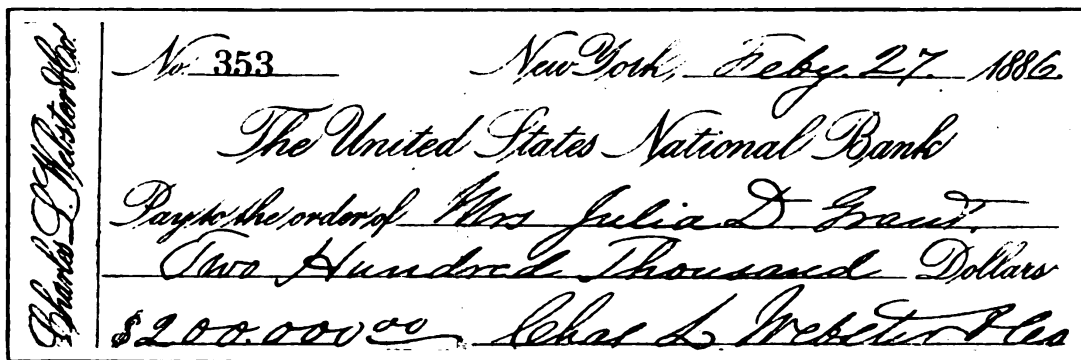 Charles L. Webster & Co.
No. 353 New York, Feby. 27. 1886.
The United States National Bank
Pay to the order of Mrs Julia D Grant.
Two Hundred Thousand Dollars
$200.000 00 Chas L. Webster & Co